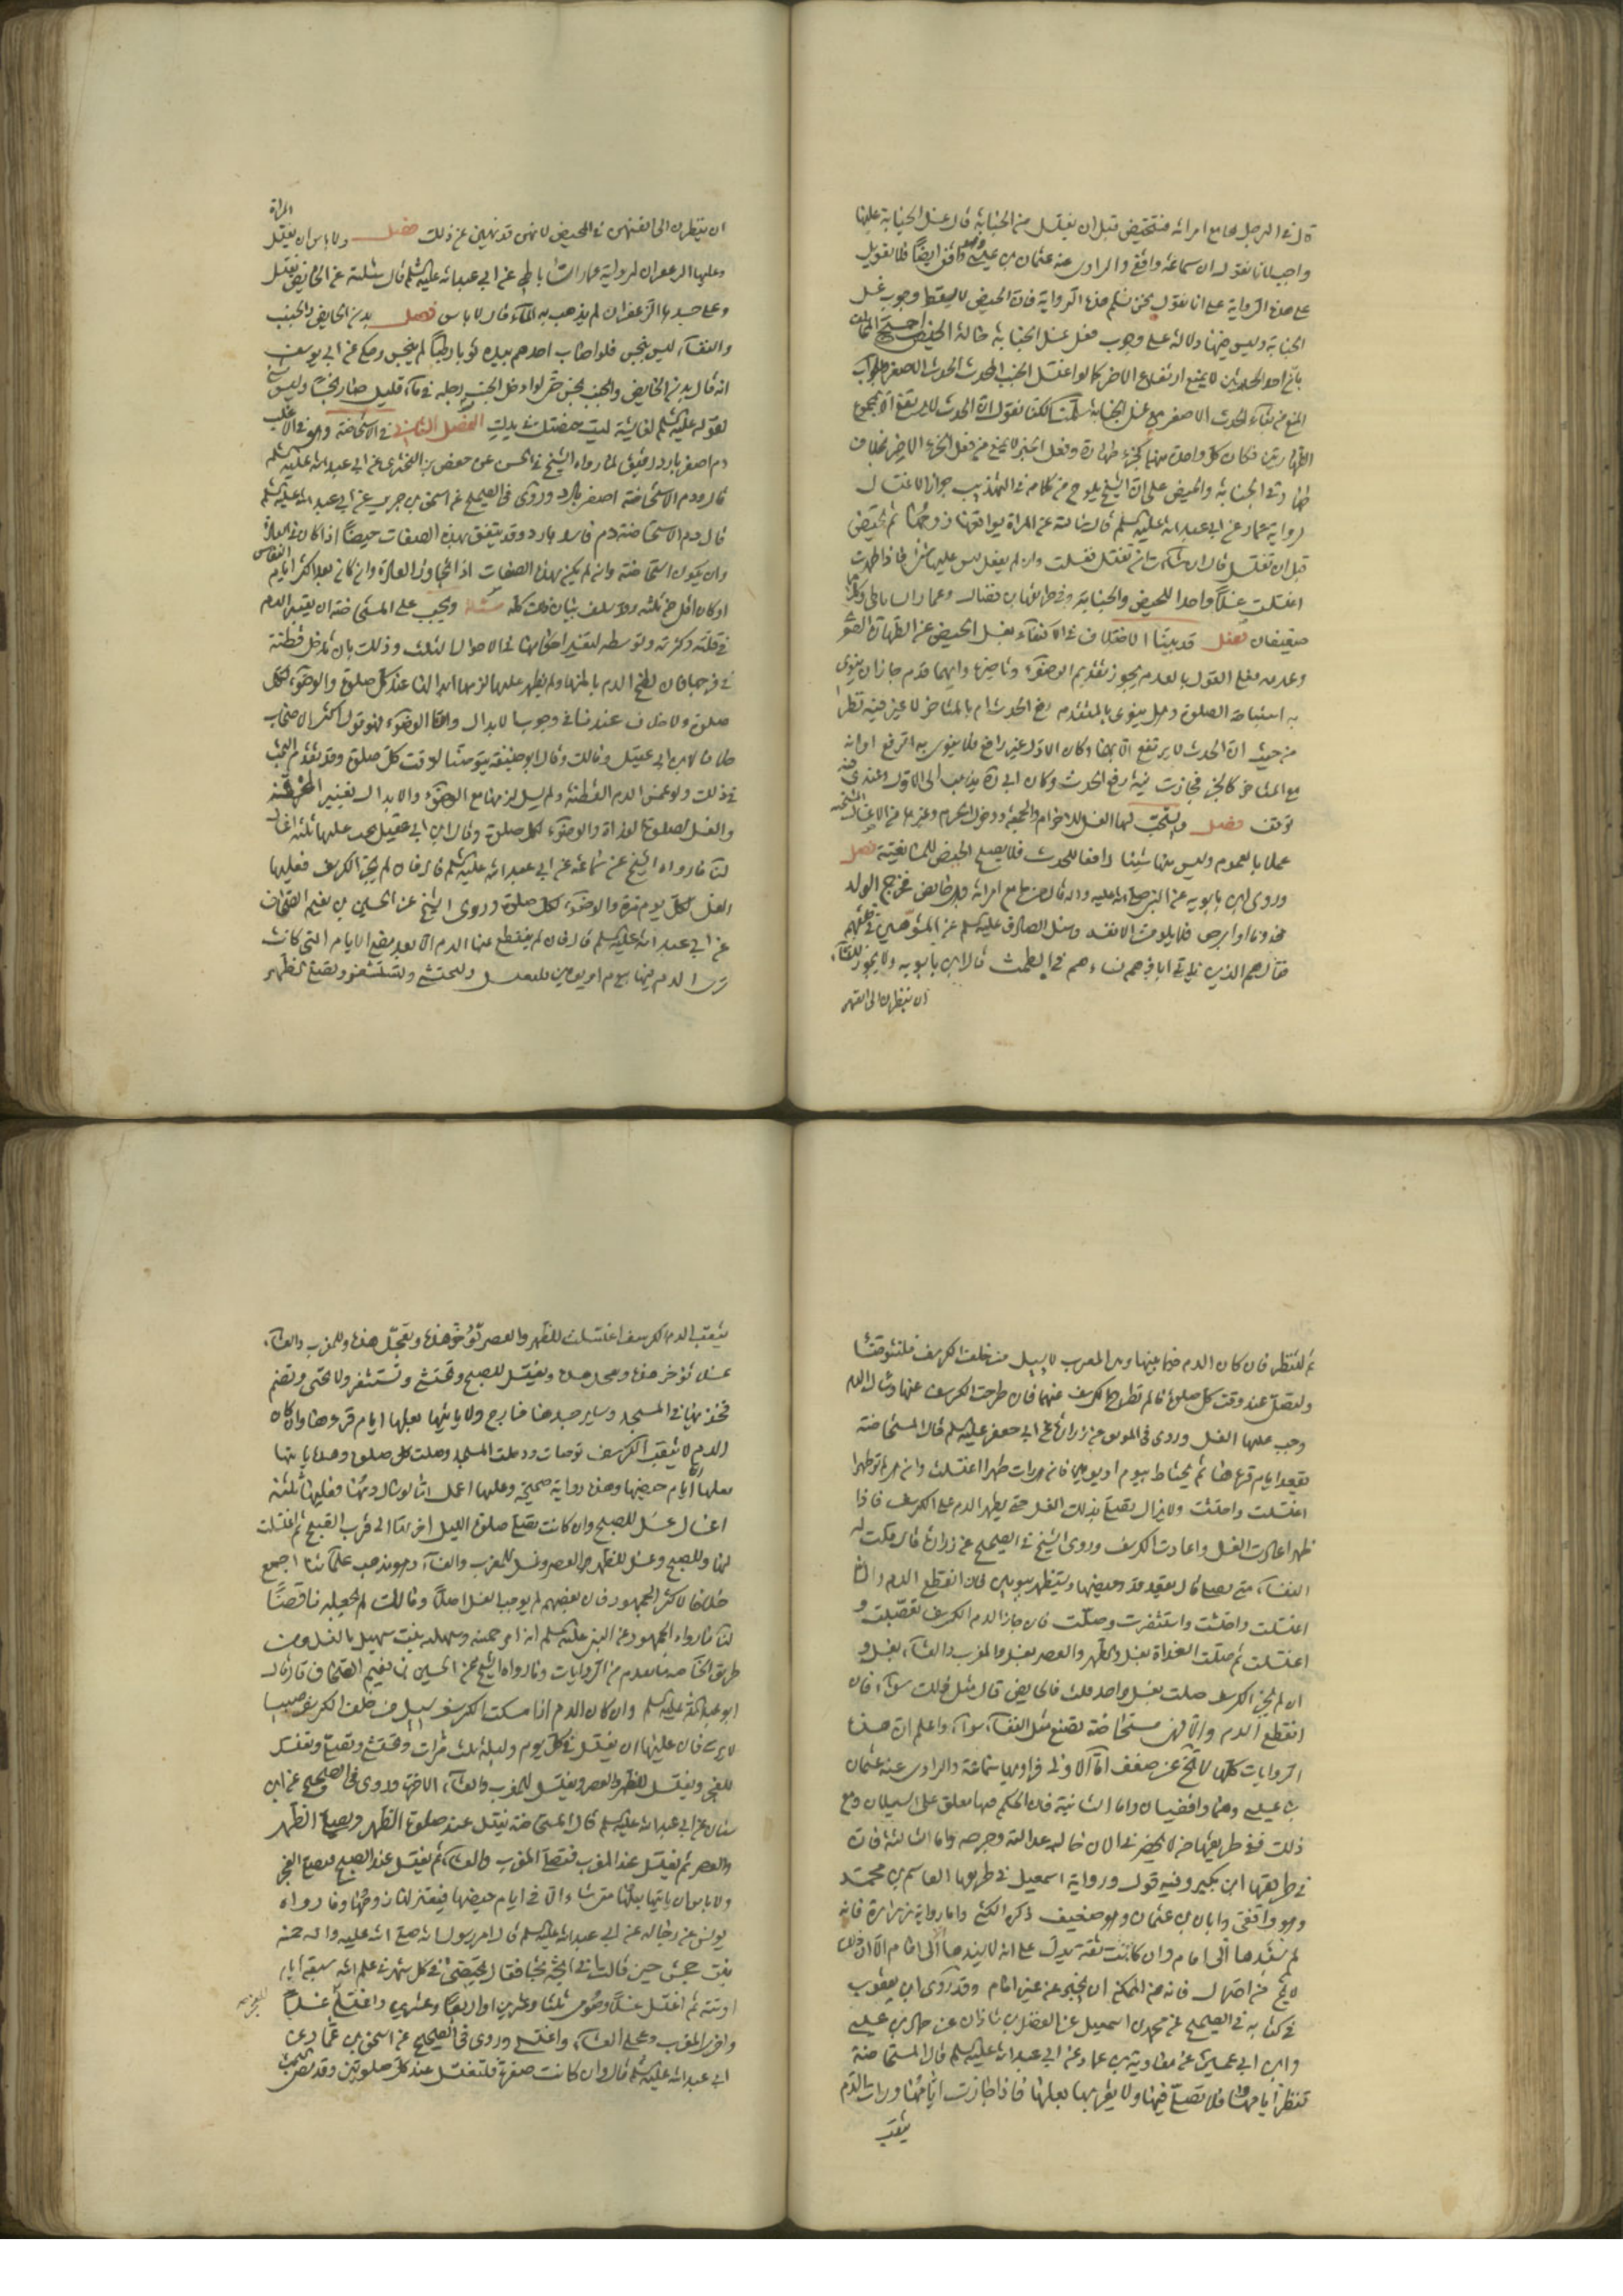 قال في الرجل يجامع امرأته فتحيض قبل ان يغتسل من الجنابة قال غسل الجنابة عليها
واجب لانا نقول ان سماعة واقفي والراوي عنه عثمان بن عيسى وهو واقفي ايضا فلا تعويل
على هذه الرواية على انا نقول نحن نسلم هذه الرواية فان الحيض لا يسقط وجوب غسل
الجنابة وليس فيها دلالة على وجوب فعل غسل الجنابة حالة الحيض احتج المخالف
بان احد الحدثين لا يمنع ارتفاع الاخر كما لو اغتسل الجنب المحدث الحدث الاصغر والجواب
المنع من بقاء الحدث الاصغر مع غسل الجنابة سلمنا لكنا نقول ان الحدث لا يرتفع الا بمجموع
الطهارتين فكان كل واحدة منهما كجزء طهارة وفعل الجزء لا يمنع من فعل الجزء الاخر بخلاف
حدثي الجنابة والحيض على ان الشيخ يلوح من كلامه في التهذيب جواز الاغتسال
لرواية عمار عن ابي عبد الله عليه السلم قال سالته عن المراة يواقعها زوجها ثم تحيض
قبل ان تغتسل قال ان شاءت ان تغتسل فعلت وان لم تفعل ليس عليها شيء فاذا طهرت
اغتسلت غسلا واحدا للحيض والجنابة وفي طريقها ابن فضال وعمار الساباطي وكلاهما
ضعيفان فصل قد بينا الاختلاف في الاكتفاء بغسل الحيض عن الطهارة الصغرى
وعدمه فعلى القول بالعدم يجوز تقديم الوضوء وتاخيره وايهما قدم جاز ان ينوى
به استباحة الصلوة وهل ينوى بالمتقدم رفع الحدث ام بالمتاخر لا غير فيه نظر
من حيث ان الحدث لا يرتفع الا بهما وكان الاول غير رافع فلا ينوى به الرفع او انه
مع المتاخر كالجزء فجازت نية رفع الحدث وكان ابي ره يذهب الى الاول وعندي فيه
توقف فصل ويستحب لها الغسل للاحرام والجمعة ودخول الحرم وغيرها من الاغسال المستحبة
عملا بالعموم وليس منها شيئا رافعا للحدث فلا يصلح الحيض للمانعية فصل
وروى ابن بابويه عن النبي صلى الله عليه واله قال من جامع امراته وهي حايض فخرج الولد
مجذوما او ابرص فلا يلومن الا نفسه وسئل الصادق عليه السلم عن المشوهين في خلقهم
فقال هم الذين ياتي اباؤهم نساءهم في الطمث قال ابن بابويه ولا يجوز للنساء
ان ينظرن الى انفسهن
ان ينظرن الى انفسهن في المحيض لانهن قد نهين عن ذلك فصل ولا باس ان تغتسل المراة
وعليها الزعفران لرواية عمار الساباطي عن ابي عبد الله عليه السلم قال سئلته عن الحايض تغتسل
وعلى جسدها الزعفران لم يذهب به الماء قال لا باس فصل بدن الحايض والجنب
والنفساء ليس بنجس فلو اصاب احدهم بيده ثوبا رطبا لم ينجس وحكي عن ابي يوسف
انه قال بدن الحايض والجنب نجس حتى لو ادخل الجنب رجله في ماء قليل صار نجسا وليس بشيء
لقوله عليه السلم لعايشة ليست حيضتك في يدك الفصل الثاني في الاستحاضة وهو في الاغلب
دم اصفر بارد رقيق لما رواه الشيخ في الحسن عن حفص بن البختري عن ابي عبد الله عليه السلم
قال ودم الاستحاضة اصفر بارد وروى في الصحيح عن اسحق بن جرير عن ابي عبد الله عليه السلم
قال دم الاستحاضة دم فاسد بارد وقد يتفق بهذه الصفات حيضا اذا كان في العادة
وان يكون استحاضة وان لم يكن بهذه الصفات اذا تجاوز العادة وان كان بعد اكثر ايام النفاس
او كان اقل من ثلثة وقد سلف بيان ذلك كله مسئلة ويجب على المستحاضة ان تعتبر الدم
في قلته وكثرته وتوسطه لتغير احكامها في الاحوال الثلث وذلك بان تدخل قطنة
في فرجها فان لطخ الدم باطنها ولم يظهر عليها لزمها ابدالها عند كل صلوة والوضوء لكل
صلوة ولا خلاف عندنا في وجوب الابدال واما الوضوء فهو قول اكثر الاصحاب
خلافا لابن ابي عقيل ومالك وقال ابو حنيفة يتوضا لوقت كل صلوة وقد تقدم البحث
في ذلك ولو غمس الدم القطنة ولم يسل لزمها مع الوضوء والابدال تغيير الخرقة
والغسل لصلوة الغداة والوضوء لكل صلوة وقال ابن ابي عقيل يجب عليها ثلثة اغسال
لنا ما رواه الشيخ عن سماعة عن ابي عبد الله عليه السلم قال فان لم يجز الكرسف فعليها
الغسل لكل يوم مرة والوضوء لكل صلوة وروى الشيخ عن الحسين بن نعيم الصحاف
عن ابي عبد الله عليه السلم قال فان لم ينقطع عنها الدم الا بعد مضي الايام التي كانت
ترى الدم فيها بيوم او يومين فلتغتسل ولتحتش ولتستثفر وتصلي الظهر
ثم لتنظر فان كان الدم فيما بينها وبين المغرب لا يسيل من خلف الكرسف فلتتوضا
ولتصل عند وقت كل صلوة ما لم تطرح الكرسف عنها فان طرحت الكرسف عنها وسال الدم
وجب عليها الغسل وروى في الموثق عن زرارة عن ابي جعفر عليه السلم قال المستحاضة
تقعد ايام قرءها ثم تحتاط بيوم او يومين فان هي رات طهرا اغتسلت وان هي لم تر طهرا
اغتسلت واحتشت ولا تزال تصلي بذلك الغسل حتى يظهر الدم على الكرسف فاذا
ظهر اعادت الغسل واعادت الكرسف وروى الشيخ في الصحيح عن زرارة قال قلت له
النفساء متى تصلي قال تقعد قدر حيضها وتستظهر بيومين فان انقطع الدم والا
اغتسلت واحتشت واستثفرت وصلت فان جاز الدم الكرسف تعصبت و
اغتسلت ثم صلت الغداة بغسل والظهر والعصر بغسل والمغرب والعشاء بغسل و
ان لم يجز الكرسف صلت بغسل واحد قلت فالحايض قال مثل ذلك سواء فان
انقطع الدم والا فهي مستحاضة تصنع مثل النفساء سواء واعلم ان هذه
الروايات كلها لا تخ عن ضعف اما الاولى فراويها سماعة والراوي عنه عثمان
بن عيسى وهما واقفيان واما الثانية فان الحكم فيها معلق على السيلان ومع
ذلك ففي طريقها من لا يحضرني الان حاله عدالته وجرحه واما الثالثة فان
في طريقها ابن بكير وفيه قول ورواية اسمعيل في طريقها القاسم بن محمد
وهو واقفي وابان بن عثمان وهو ضعيف ذكره الكشي واما رواية زرارة فانه
لم يسندها الى امام وان كانت ثقته تدل على انه لا يسندها الا الى امام الا ان ذلك
لا يخ من احتمال فانه من الممكن ان يخبر عن غير امام وقد روى ابن يعقوب
في كتابه في الصحيح عن محمد بن اسمعيل عن الفضل بن شاذان عن حماد بن عيسى
وابن ابي عمير عن معاوية بن عمار عن ابي عبد الله عليه السلم قال المستحاضة
تنظر ايامها فلا تصلي فيها ولا يقربها بعلها فاذا جازت ايامها ورات الدم
يثقب
يثقب الدم الكرسف اغتسلت للظهر والعصر تؤخر هذه وتعجل هذه وللمغرب والعشاء
غسلا تؤخر هذه وتعجل هذه وتغتسل للصبح وتحتشي وتستثفر ولا تحني وتضم
فخذيها في المسجد وساير جسدها خارج ولا ياتيها بعلها ايام قرءها وان كان
الدم لا يثقب الكرسف توضات ودخلت المسجد وصلت كل صلوة وهذه ياتيها
بعلها الا ايام حيضها وهذه رواية صحيحة وعليها اعمل اما لو سال دمها فعليها ثلثة
اغسال غسل للصبح وان كانت تصلي صلوة الليل اخرتها الى قرب الصبح ثم اغتسلت
لها وللصبح وغسل للظهر والعصر وغسل للمغرب والعشاء وهو مذهب علمائنا اجمع
خلافا لاكثر الجمهور فان بعضهم لم يوجب الغسل اصلا ومالك لم يجعله ناقضا
لنا ما رواه الجمهور عن النبي عليه السلم انه امر حمنة وسهلة بنت سهيل بالغسل ومن
طريق الخاصة ما تقدم من الروايات وما رواه الشيخ عن الحسين بن نعيم الصحاف قال قال
ابو عبد الله عليه السلم وان كان الدم اذا امسكت الكرسف يسيل من خلف الكرسف صبيبا
لا يرقى فان عليها ان تغتسل في كل يوم وليلة ثلث مرات وتحتشي وتصلي وتغتسل
للفجر وتغتسل للظهر والعصر وتغتسل للمغرب والعشاء الاخرة وروى في الصحيح عن ابن
سنان عن ابي عبد الله عليه السلم قال المستحاضة تغتسل عند صلوة الظهر وتصلي الظهر
والعصر ثم تغتسل عند المغرب فتصلي المغرب والعشاء ثم تغتسل عند الصبح فتصلي الفجر
ولا باس ان ياتيها بعلها متى شاء الا في ايام حيضها فيعتزلها زوجها وما رواه
يونس عن رجاله عن ابي عبد الله عليه السلم قال امر رسول الله صلى الله عليه واله حمنة
بنت جحش حين قالت اني اثجه ثجا فقال تحيضي في كل شهر في علم الله سبعة ايام
او ستة ثم اغتسلي غسلا وصومي ثلثا وعشرين او اربعا وعشرين واغتسلي غسلا
واخري المغرب وعجلي العشاء واغتسلي وروى في الصحيح عن اسحق بن عمار عن
ابي عبد الله عليه السلم قال وان كانت صفرة فلتغتسل عند كل صلوتين وقد نص الشيخ